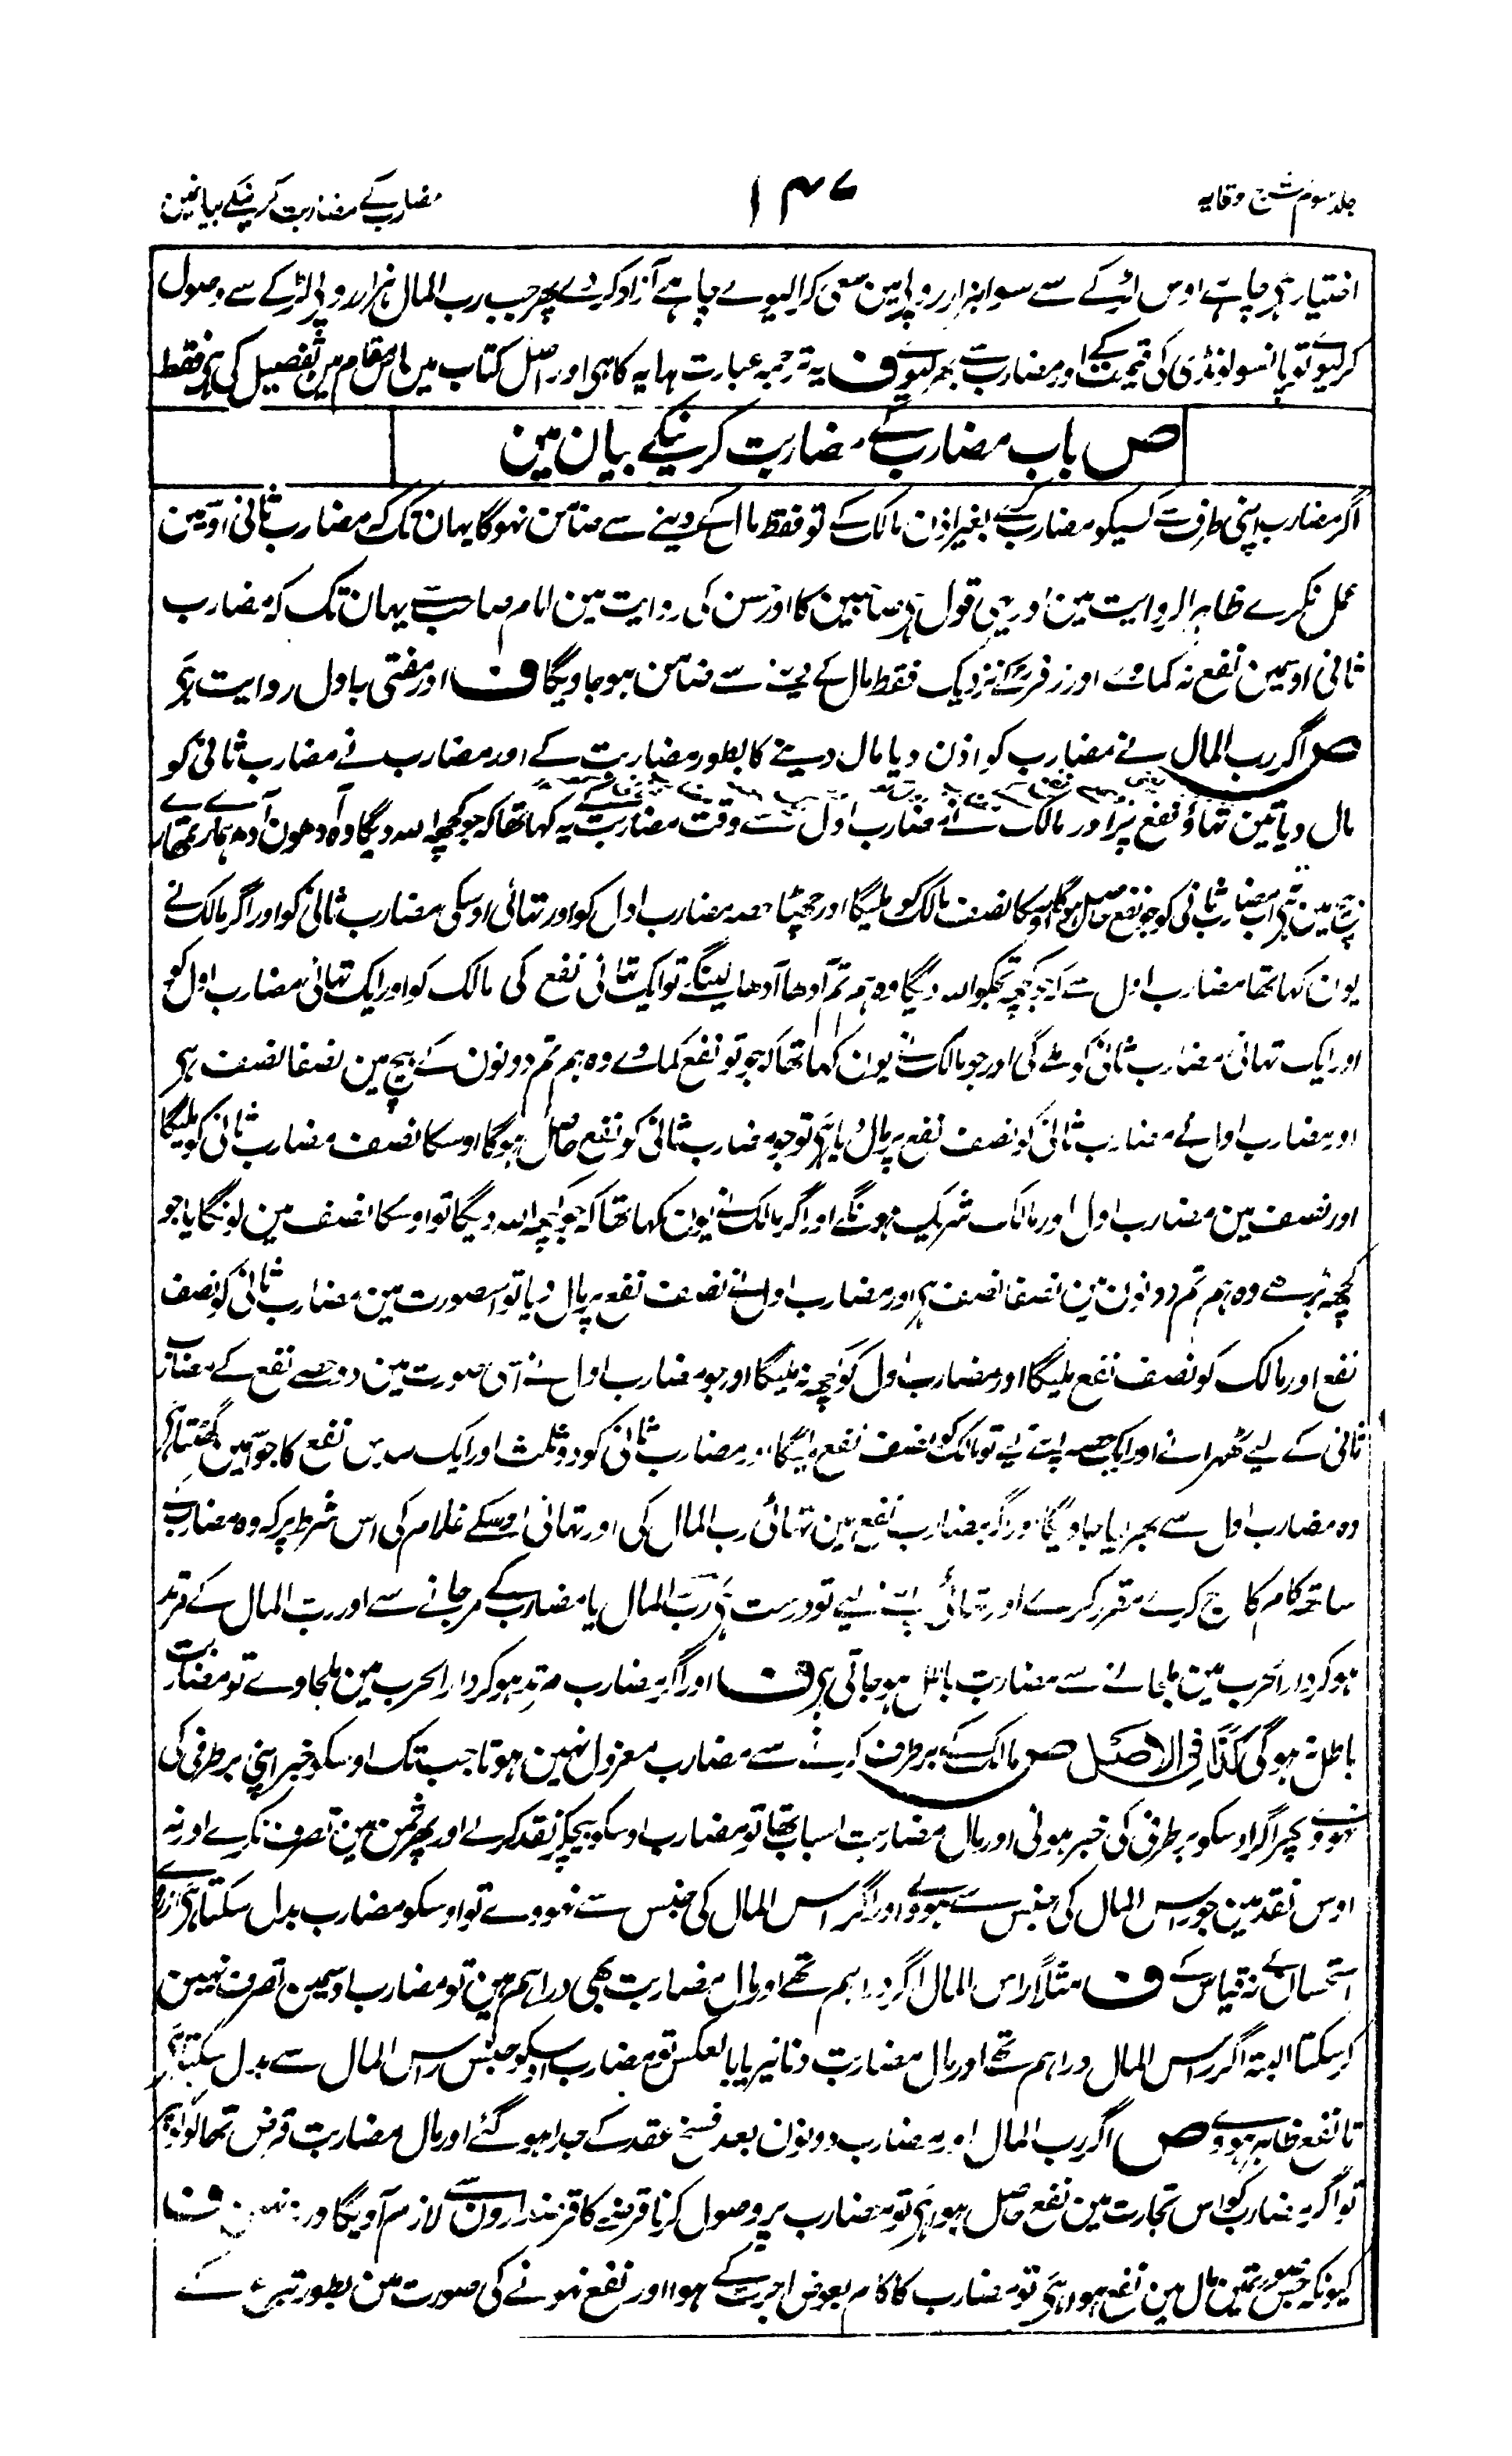 جلد سوم شرح وقایہ
۱۴۷
مضارب کے مضاربت کرنیکے بیانمین
اختیار ہی چاہے اوس لڑکے سے سوا ہزار روپی مین سعی کرالیوے چاہے آزاد کردے پھر جب رب المال ہزار روپی لڑکے سے وصول
کرلیوے تو پانسو لونڈی کی قیمت کے اور مضارب سے بھر لیوے ف یہ ترجمہ عبارت ہدایہ کا ہی اور اصل کتاب مین اس مقام مین تفصیل کی ہی فقط
ص باب مضارب کے مضاربت کرنیکے بیان مین
اگر مضارب اپنی طرف سے کسیکو مضارب کرے بغیر اذن مالک کے تو فقط مال کے دینے سے ضامن نہوگا یہان تک کہ مضارب ثانی اوسمین
عمل نکرے ظاہر الروایت مین اور یہی قول ہی صاحبین کا اور حسن کی روایت مین امام صاحب سے یہان تک کہ مضارب
ثانی اوسمین نفع نہ کماوے اور زفر کے نزدیک فقط مال کے دینے سے ضامن ہوجاویگا ف اور مفتی بہ اول روایت ہی
ص اگر رب المال نے مضارب کو اذن دیا مال دینے کا بطور مضاربت کے اور مضارب نے مضارب ثانی کو
مال دیا تین تہاؤ نفع پر اور مالک نے مضارب اول سے وقت مضاربت کے یہ کہا تھا کہ جو کچھہ اللہ دیگا وہ آدھون آدہ ہمارے تمھارے
بیچ مین ہی اب مضارب ثانی کو جو نفع حاصل ہوگا اوسکا نصف مالک کو ملیگا اور چھٹا حصہ مضارب اول کو اور تہائی اوسکی مضارب ثانی کو اور اگر مالک نے
یون کہا تھا مضارب اول سے کہ جو کچھہ تجکو اللہ دیگا وہ ہم تم آدھا آدھا لینگے تو ایک تہائی نفع کی مالک کو اور ایک تہائی مضارب اول کو
اور ایک تہائی مضارب ثانی کو ملے گی اور جو مالک نے یون کہا تھا کہ جو تو نفع کماوے وہ ہم تم دونون کے بیچ مین نصفا نصف ہی
اور مضارب اول نے مضارب ثانی کو نصف نفع پر مال دیا ہی تو جو مضارب ثانی کو نفع حاصل ہوگا اوسکا نصف مضارب ثانی کو ملیگا
اور نصف مین مضارب اول اور مالک شریک ہونگے اور اگر مالک نے یون کہا تھا کہ جو کچھہ اللہ دیگا تو اوسکا نصف مین لونگا یا جو
کچھہ بڑھے وہ ہم تم دونون مین نصفا نصف ہی اور مضارب اول نے نصف نفع پر مال دیا تو اسصورت مین مضارب ثانی کو نصف
نفع اور مالک کو نصف نفع ملیگا اور مضارب اول کو کچھہ نہ ملیگا اور جو مضارب اول نے اسی صورت مین دو حصے نفع کے مضارب
ثانی کے لیے ٹھہرائے اور ایک حصہ اپنے لیے تو مالک کو نصف نفع ملیگا اور مضارب ثانی کو دو ثلث اور ایک سدس نفع کا جو اسمین گھٹتا ہی
وہ مضارب اول سے بھر دیا جاویگا اور اگر مضارب نفع مین تہائی رب المال کی اور تہائی اوسکے غلام کی اس شرط پر کہ وہ مضارب کے
ساتھہ کام کاج کرے مقرر کرے اور تہائی اپنے لیے تو درست ہی رب المال یا مضارب کے مرجانے سے اور رب المال کے مرتد
ہوکر دار الحرب مین ملجانے سے مضاربت باطل ہوجاتی ہی ف اور اگر مضارب مرتد ہوکر دار الحرب مین ملجاوے تو مضاربت
باطل نہ ہوگی كَذَا فِي الاصل ص مالک کے برطرف کرنے سے مضارب معزول نہین ہوتا جب تک اوسکو خبر اپنی برطرفی کی
نہووے پھر اگر اوسکو برطرفی کی خبر ہوئی اور مال مضاربت اسباب تھا تو مضارب اوسکو بیچکر نقد کرلے اور پھر ثمن مین تصرف نکرے اور نہ
اوس نقد مین جو راس المال کی جنس سے ہووے اور اگر راس المال کی جنس سے نہووے تو اوسکو مضارب بدل سکتا ہی ازروے
استحسان کے نہ قیاس کے ف مثلاً راس المال اگر دراہم تھے اور مال مضاربت بھی دراہم ہین تو مضارب اوسمین تصرف نہین
کرسکتا البتہ اگر راس المال دراہم تھے اور مال مضاربت دنانیر یا بالعکس تو مضارب اوسکو جنس راس المال سے بدل سکتا ہی
تا نفع ظاہر ہووے ص اگر رب المال اور مضارب دونون بعد فسخ عقد کے جدا ہوگئے اور مال مضاربت قرض تھا لوگونپر
تو اگر مضارب کو اس تجارت مین نفع حاصل ہوا ہی تو مضارب پر وصول کرنا قرضے کا قرضدارون سے لازم آویگا ورنہ نہین ف
کیونکہ جس صورتمین مال مین نفع ہوا ہی تو مضارب کا کام بعوض اجرت کے ہوا اور نفع نہونے کی صورت مین بطور تبرع کے